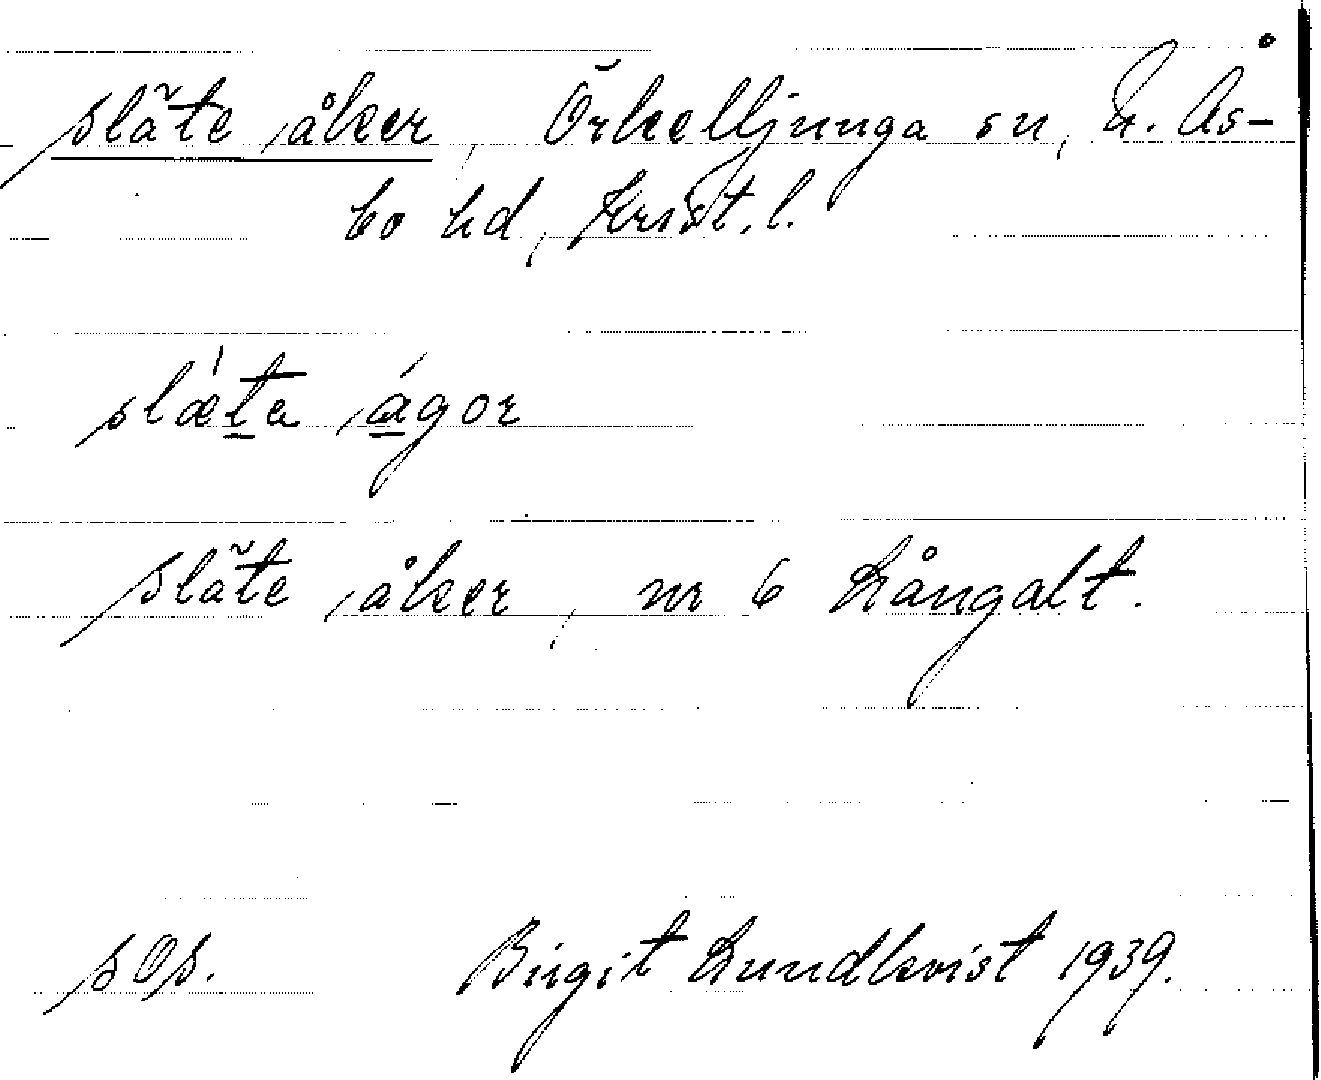 släte åker, Örkelljunga sn, N. Ås-
bo hd, Krist. l.
slæta ágor
släte åker, nr 6 Långalt.
sOp. Birgit Lundkvist 1939.